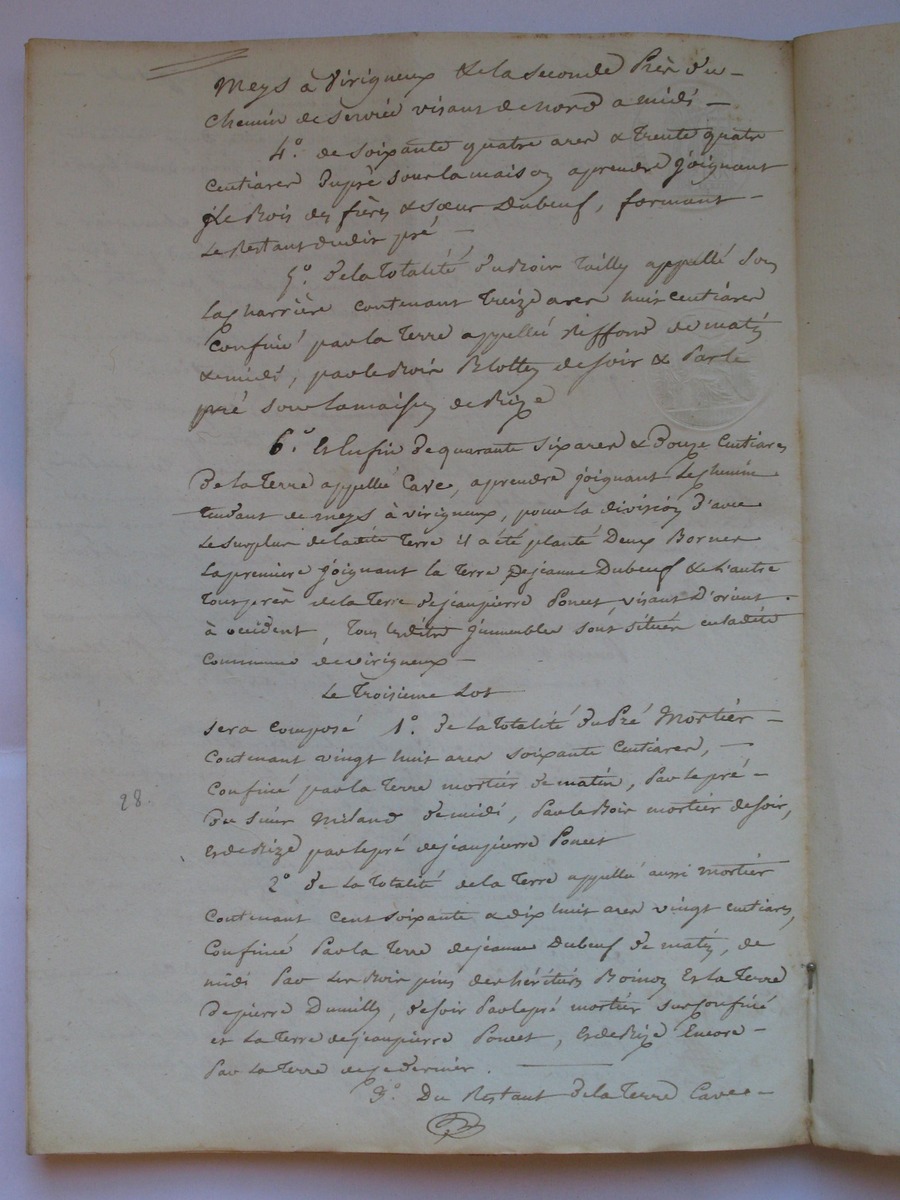 Meys à Virigneux & de la seconde Près du
chemin de Servée visant de nord a midi
4.° de soixante quatre ares & Trente quatre
centiares du pré sous la maison aprendre joignant
Le Bois des frères & Sœur Dubeuf, formant
Le Restant dudit pré
5.° de la totalité du Bois Tailly appellé Sous
La Charrière contenant treize ares huit centiares
Confiné par la Terre appellée de matin
& midi, par le Bois Blottin de soir & Par le
pré sous la maison de Bize
6.° Et Enfin de quarante six ares & Douze Centiares
De la Terre appellée Cave, aprendre joignant Le Chemin
tendant de meys à virigneux, pour la division d'avec
Le surplus de ladite Terre il a été planté Deux Bornes
La premiere joignant la Terre de jeanne Dubeuf & L'autre
Tout près de la Terre de jean pierre Poncet, visant D'orient
à occident, Tous lesdits jmmeubles sont situés en ladite
Commune de virigneux
Le Troisieme Lot
sera composé 1.° de la totalité du Pré Mortier
Contenant vingt huit ares soixante Centiares,
Confiné par la Terre mortier de matin, Par le pré
28.
du sieur Miland de midi, Par le Bois mortier de soir,
Et de Bize par le pré de jean pierre Poncet
2.° de la totalité de la Terre appellée aussi mortier
Contenant Cent soixante & dix huit ares vingt centiares,
Confinée Par la Terre de jeanne Dubeuf de matin, de
midi Par Les Bois pins des héritiers Et la Terre
de pierre Dumilly, de soir Par le pré mortier sus confiné
et La Terre de jean pierre Poncet, Et de Bize Encore
Par La Terre de ce dernier.
3.° Du Restant de la Terre Cave